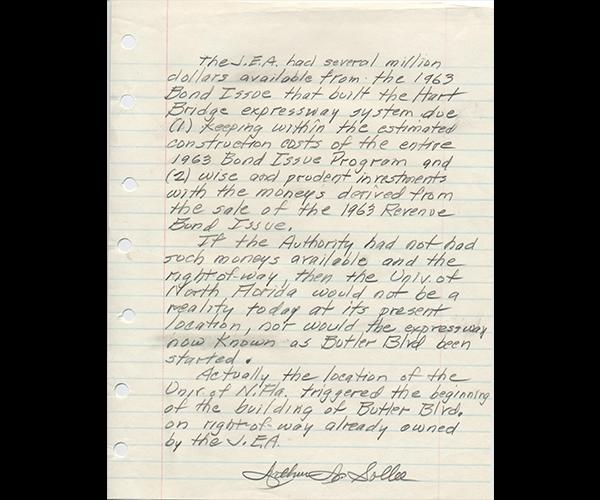 the J.E.A. had several million
dollars available from the 1963
Bond Issue that built the Hart
Bridge expressway system due
(1) keeping within the estimated
construction costs of the entire
1963 Bond Issue Program and
(2) wise and prudent investments
with the moneys derived from
the sale of the 1963 Revenue
Bond Issue.
If the Authority had not had
such moneys available and the
right-of-way, then the Univ. of
North Florida would not be a
reality today at its present
location, nor would the expressway
now known as Butler Blvd been
started.
Actually the location of the
Univ. of N. Fla. triggered the beginning
of the building of Butler Blvd.
on right-of-way already owned
by the J.E.A.
Arthur N. Sollee